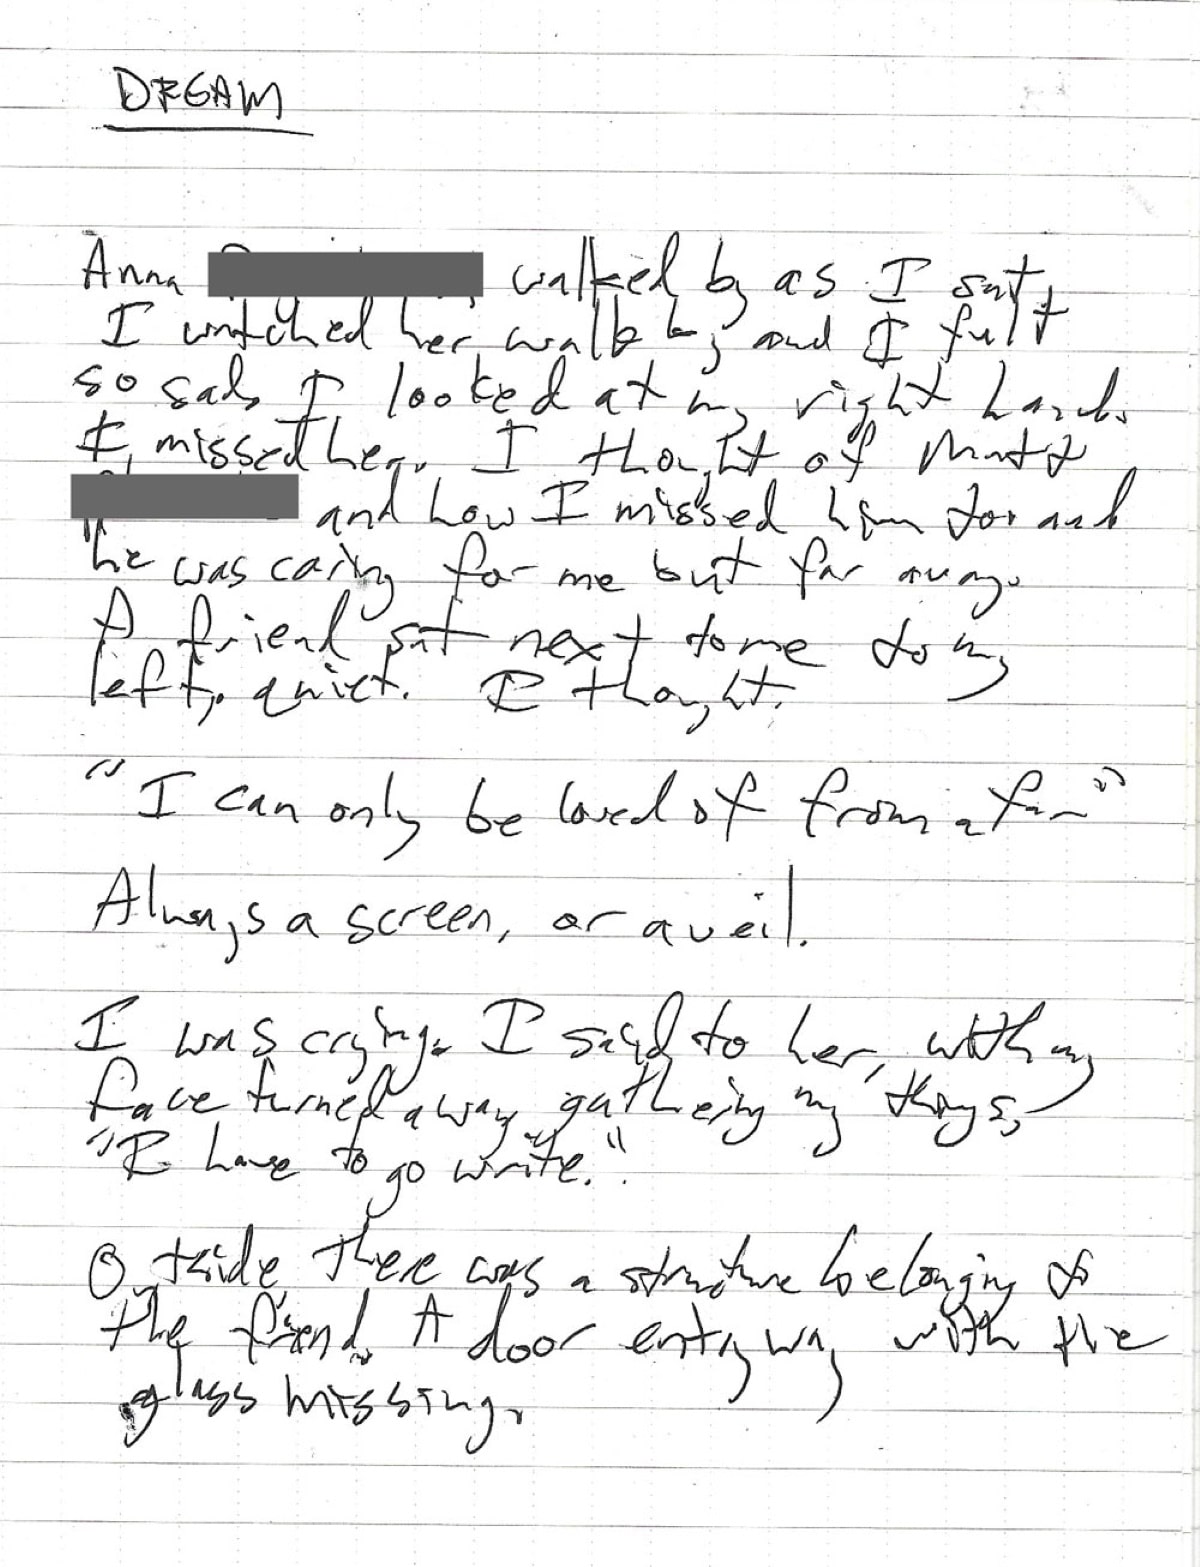 DREAM
Anna walked by as I sat,
I watched her walk by and I felt
so sad, I looked at my right hand.
I missed her. I thought of Matt
and how I missed him too and
he was caring for me but far away.
A friend sat next to me to my
left, quiet. I thought.
"I can only be loved of from afar"
Always a screen, or a veil.
I was crying. I said to her, with my
face turned away gathering my things,
"I have to go write."
Outside there was a structure belonging to
the friend. A door entryway with the
glass missing.